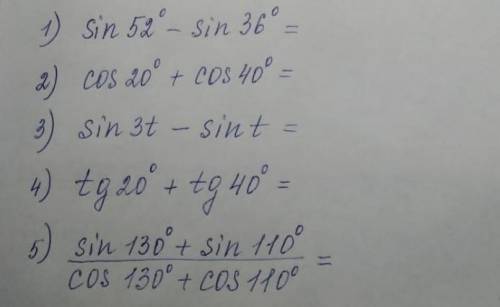 1) sin 52° – sin 36° =
2) cos 20° + cos 40° =
3) sin 3t – sin t =
4) tg 20° + tg 40° =
5) sin 130° + sin 110° / cos 130° + cos 110° =